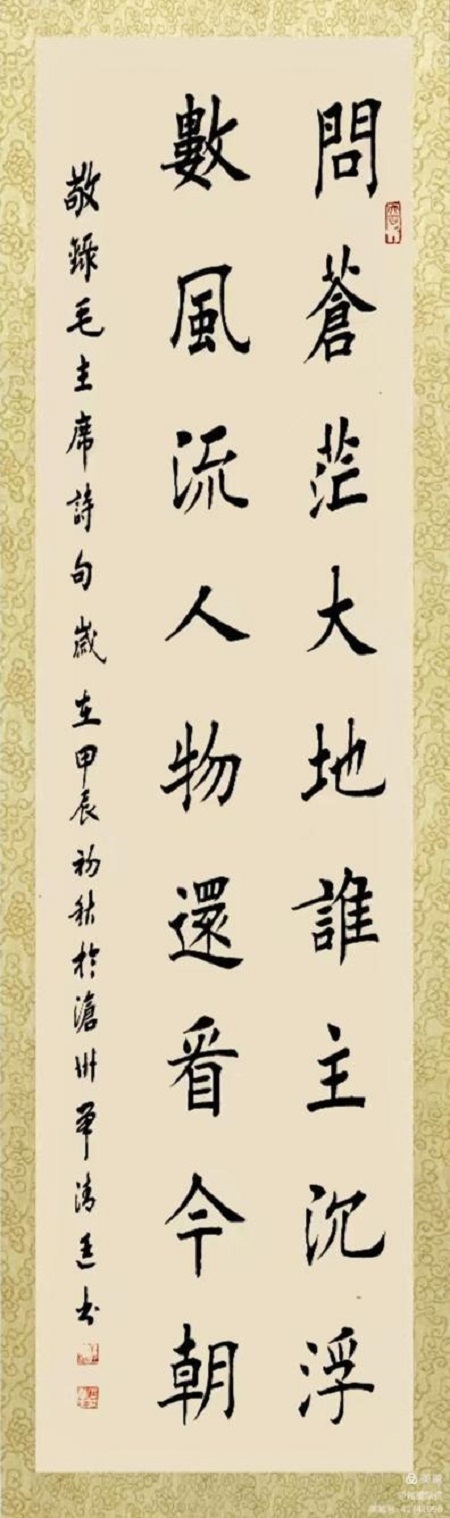 問蒼茫大地誰主沉浮
數風流人物還看今朝
敬錄毛主席詩句歲在甲辰初秋於滄州單清廷書
美篇